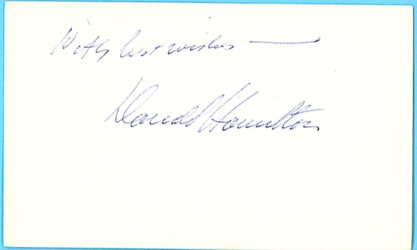 With best wishes —
Donald Hamilton